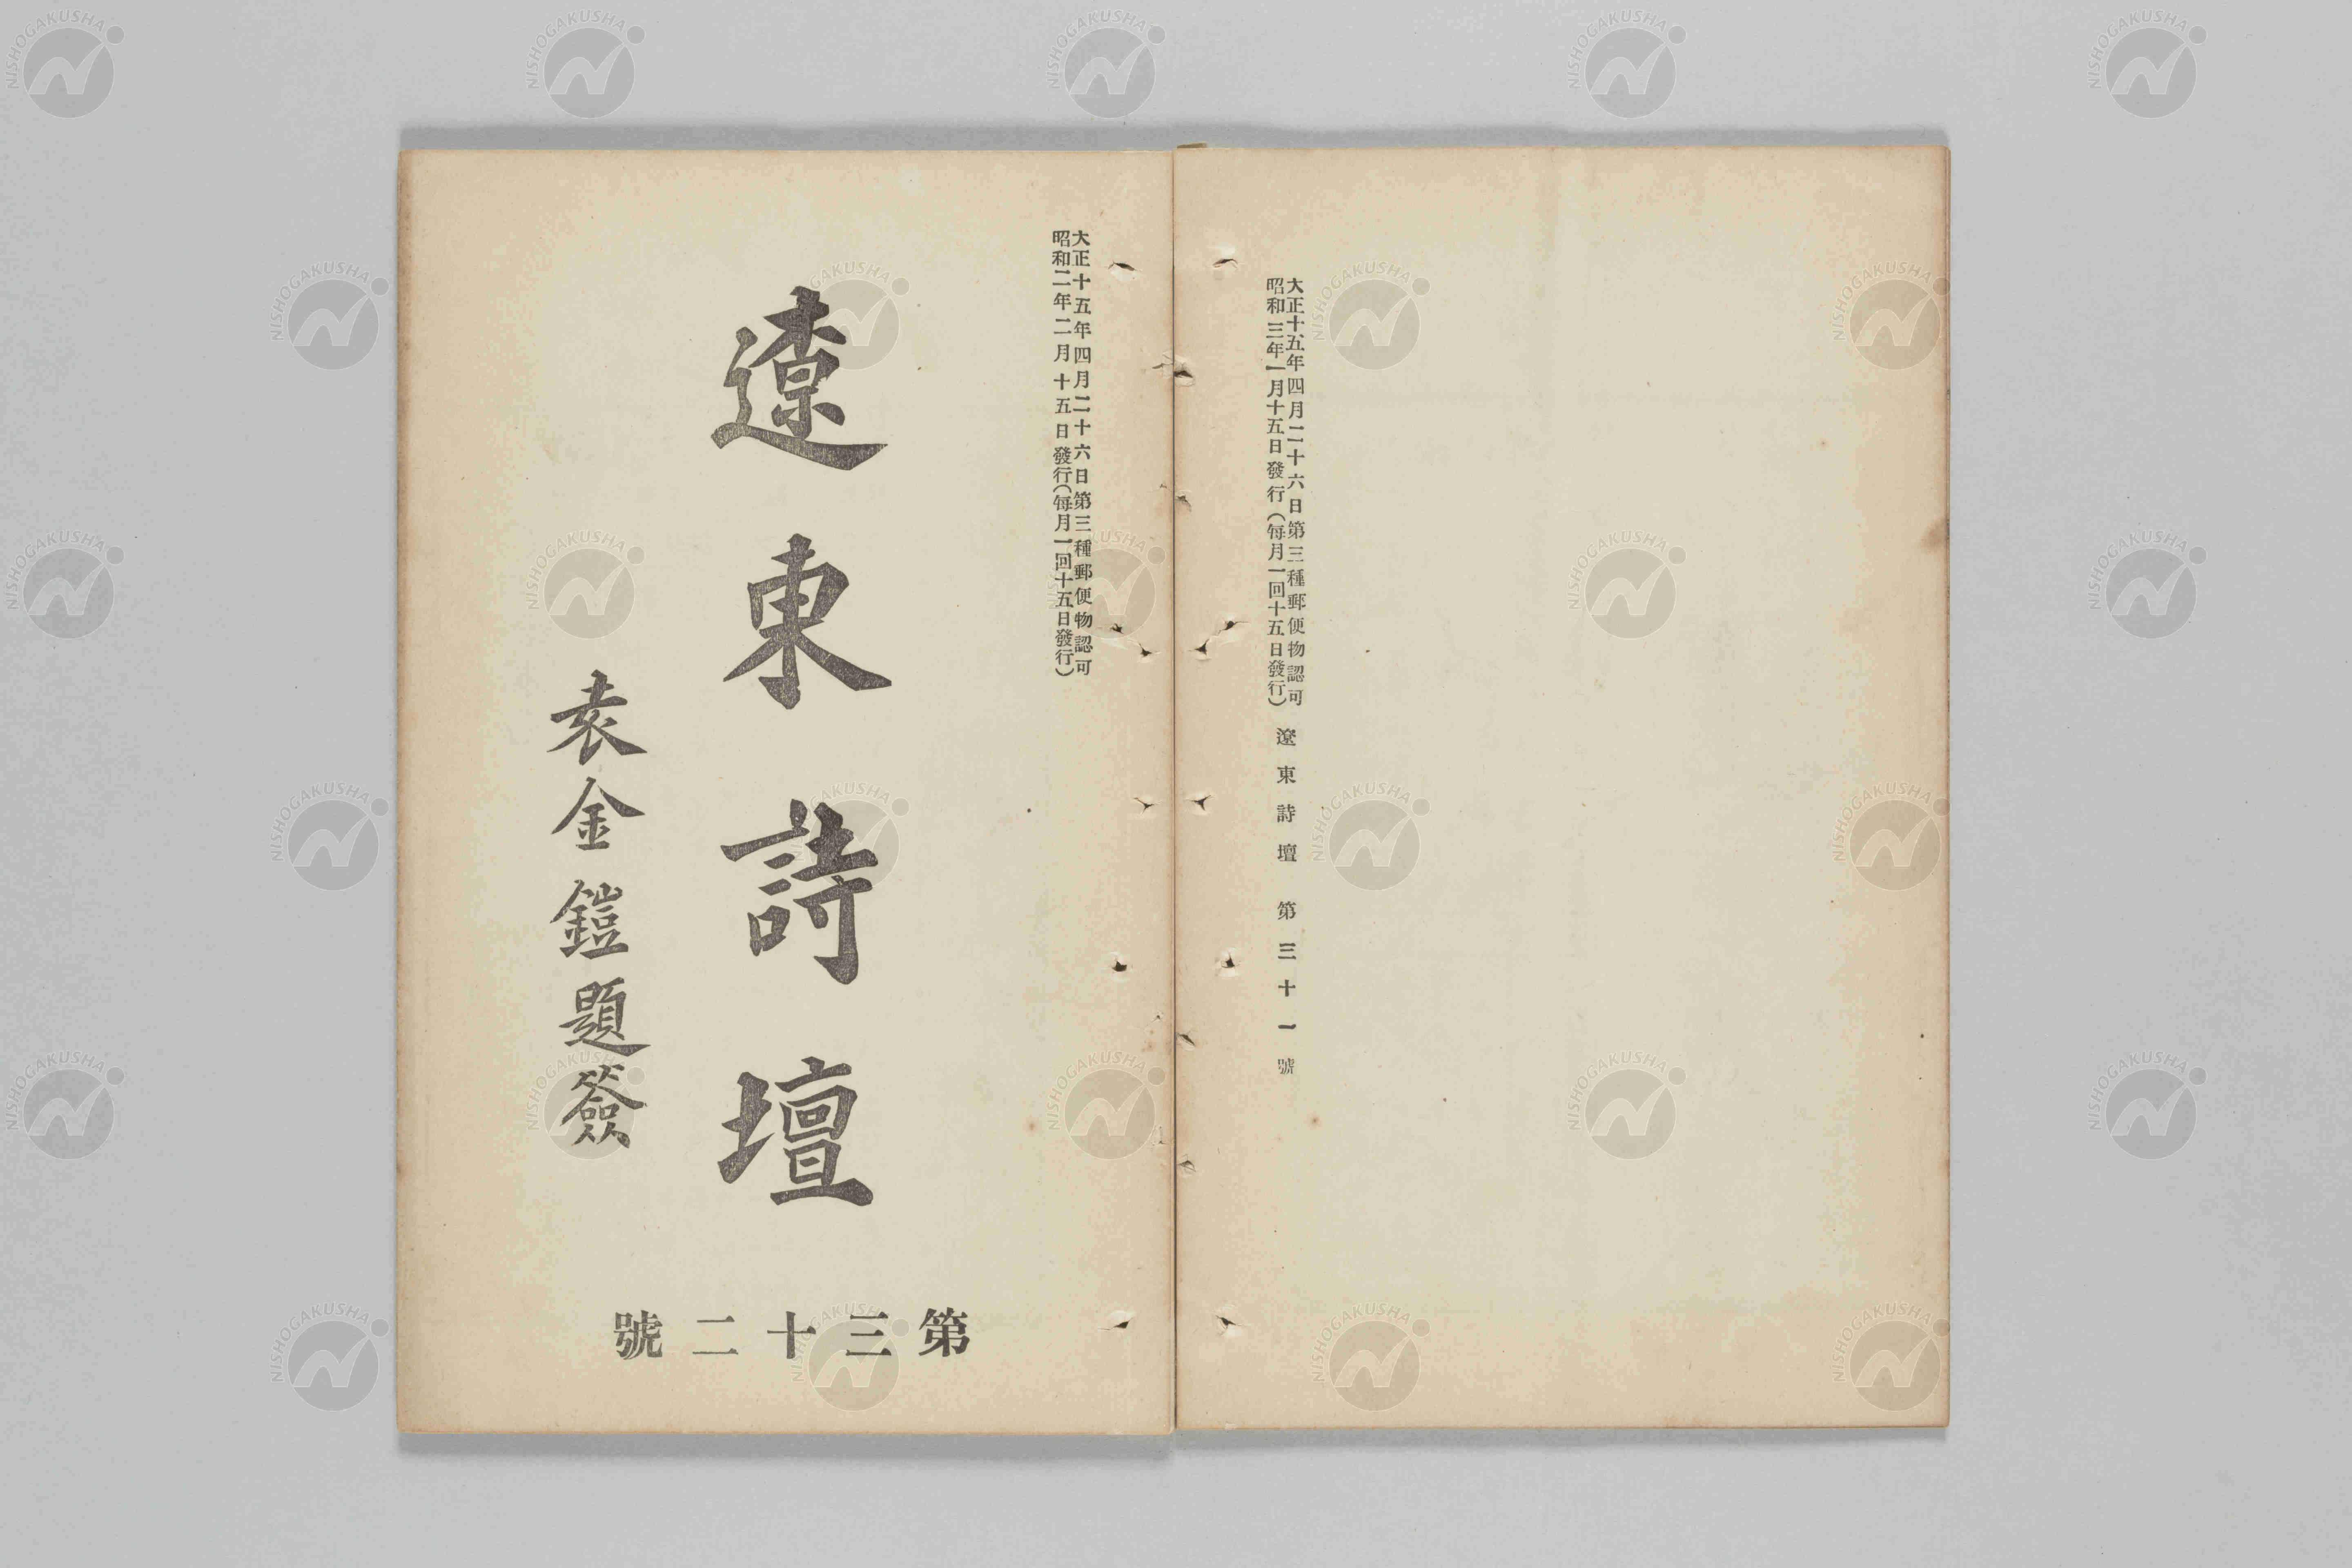 大正十五年四月二十六日第三種郵便物認可
昭和三年一月十五日發行(每月一回十五日發行)
遼東詩壇 第三十一號
大正十五年四月二十六日第三種郵便物認可
昭和二年二月十五日發行(每月一回十五日發行)
遼東詩壇
袁金鎧題簽
第三十二號
NISHOGAKUSHA